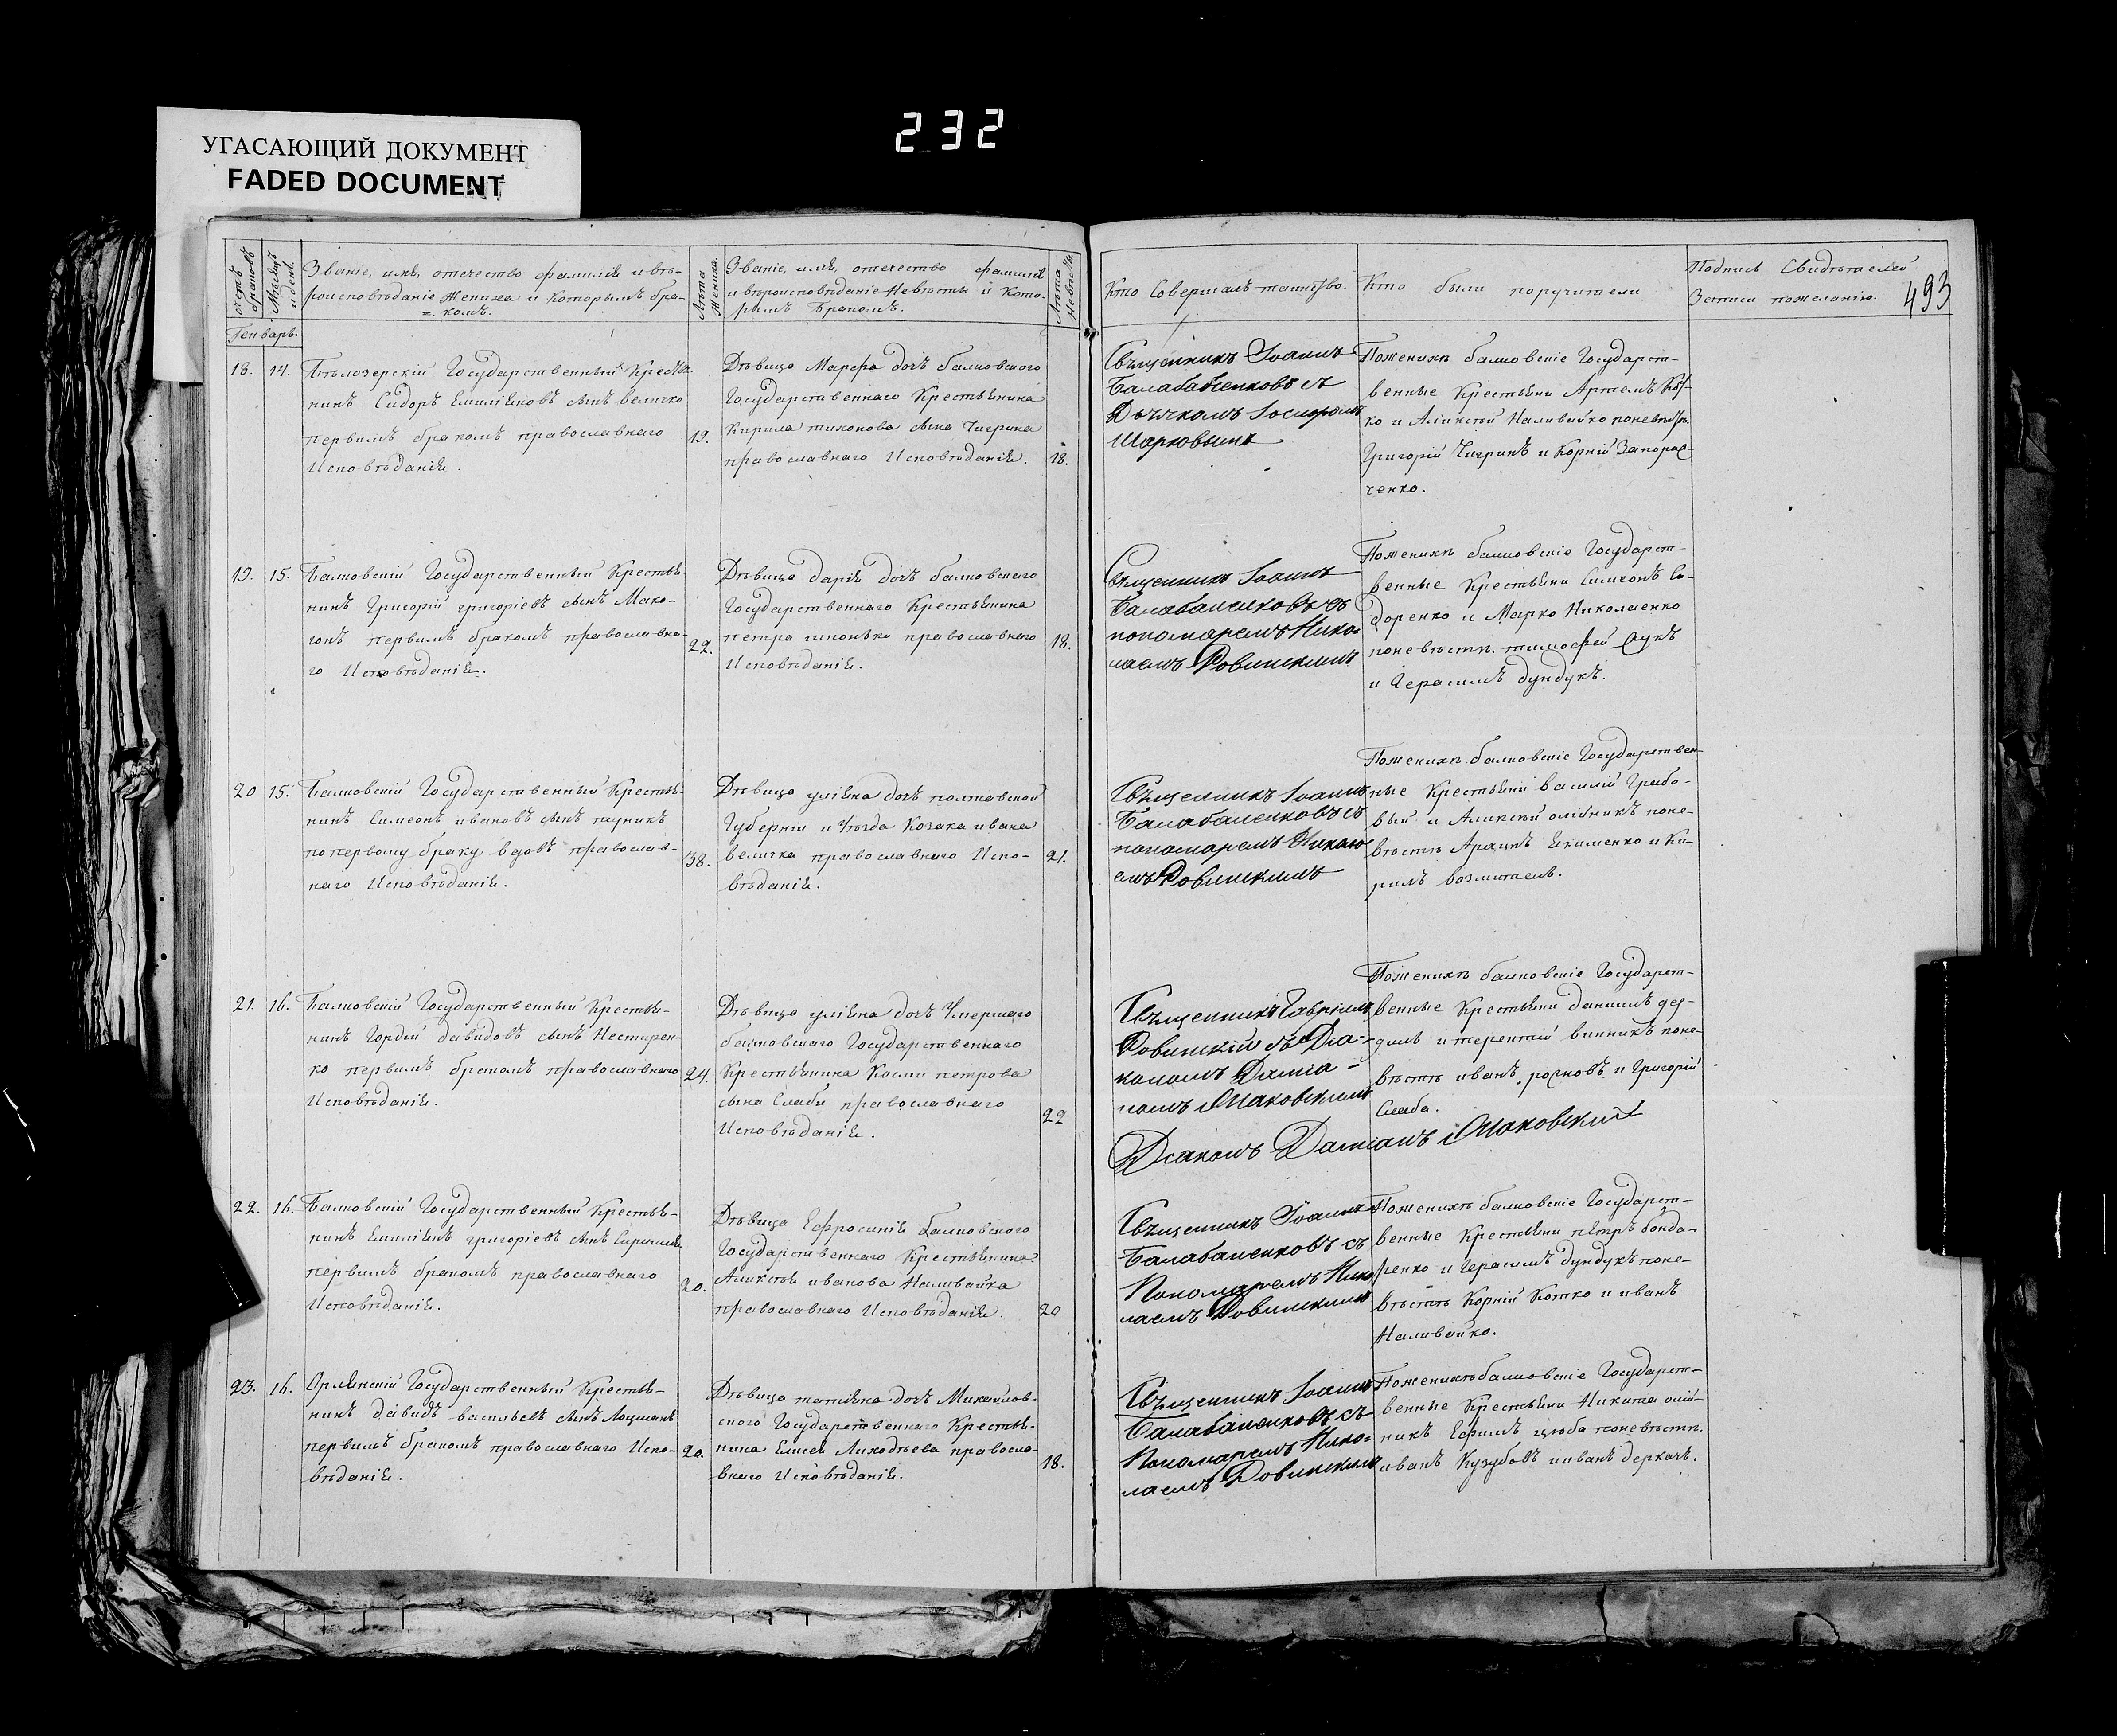 232
УГАСАЮЩИЙ ДОКУМЕНТ
FADED DOCUMENT
счетъ браковъ
Мѣсяцъ и день.
Званіе, имя, отечество фамилія и вѣ-
роисповѣданіе Жениха и которымъ бра-
комъ.
Лѣта Жениха.
Званіе, имя, отечество фамилія
и вѣроисповѣданіе Невѣсты и кото-
рымъ Бракомъ.
Лѣта Невѣсты.
Кто Совершалъ таинство.
Кто были поручители
Подпись Свидѣтелей
Записи пожеланію.
493
Генварь.
18. 14.
Бѣлозерскій Государственный Кресть-
янинъ Сидоръ Емиліяновъ сынъ величко
первымъ бракомъ православнаго
Исповѣданія.
19.
Дѣвица Марфа дочь балковскаго
Государственнаго Крестьянина
Кирила тихонова сына Чигрина
православнаго Исповѣданія.
18.
Священникъ Іоаннъ
Балабаненковъ съ
Дьячкомъ Іосифомъ
Шарковымъ
Поженихѣ балковскіе Государст-
венные Крестьяни Артемъ
ко и Аликсѣй Наливайко поневѣстѣ
Григорій Чигринъ и Корній Запорас-
ченко.
19. 15.
Балковскій Государственный Крестья-
нинъ Григорій григоріевъ сынъ Мако-
гонъ первымъ бракомъ православна-
го Исповѣданія.
22.
Дѣвица дарія дочь балковскаго
Государственнаго Крестьянина
петра шпонька православнаго
Исповѣданія.
18.
Священникъ Іоаннъ
Балабаненковъ съ
пономаремъ Нико-
лаемъ Ровинскимъ
Поженихѣ балковскіе Государст-
венные Крестьяни Симеонъ Си-
доренко и Марко Николаенко
поневѣстѣ. тимофей Сукъ
и Герасимъ дундукъ.
20 15.
Балковскій Государственный Крестья-
нинъ Симеонъ ивановъ сынъ
попервому браку вдовъ православ-
наго Исповѣданія.
38.
Дѣвица уліяна дочь полтавской
Губерніи и Уѣзда Козака ивана
величка православнаго Испо-
вѣданія.
21.
Священникъ Іоаннъ
Балабаненковъ съ
пономаремъ Никола-
емъ Ровинскимъ
Поженихѣ балковскіе Государствен-
ные Крестьяни василій Грабо-
вый и Аликсѣй олійникъ поне-
вѣстѣ Архипъ Екименко и Ки-
рилъ возмитель.
21. 16.
Балковскій Государственный Крестья-
нинъ Гордій давидовъ сынъ Нестерен-
ко первымъ бракомъ православнаго
Исповѣданія.
24.
Дѣвица уліяна дочь Умершаго
балковскаго Государственнаго
Крестьянина Косми петрова
сына Слаби православнаго
Исповѣданія.
22
Священникъ Гавріилъ
Ровинскій съ Діа-
кономъ Даміа-
номъ Маковскимъ
Діаконъ Даміанъ Маковскій
Поженихѣ балковскіе Государст-
венные Крестьяни данилъ
и терентій винникъ поне-
вѣстѣ иванъ и Григорій
Слаба.
22. 16.
Балковскій Государственный Крестья-
нинъ Емиліянъ григоріевъ сынъ
первымъ бракомъ православнаго
Исповѣданія.
20.
Дѣвица Ефросинія балковскаго
Государственнаго Крестьянина
Аликсѣя иванова Наливайка
православнаго Исповѣданія.
20
Священникъ Іоаннъ
Балабаненковъ съ
Пономаремъ Нико-
лаемъ Ровинскимъ
Поженихѣ балковскіе Государст-
венные Крестьяни петръ бонда-
ренко и Герасимъ дундукъ поне-
вѣстѣ Корній Котко и иванъ
Наливайко.
23. 16.
Орлянскій Государственный Крестья-
нинъ давидъ васильевъ сынъ Лоцманъ
первымъ бракомъ православнаго Испо-
вѣданія.
20.
Дѣвица татіяна дочь Михайлов-
ского Государственнаго Крестья-
нина Елисея Лиходѣева правосла-
внаго Исповѣданія.
18.
Священникъ Іоаннъ
Балабаненковъ съ
Пономаремъ Нико-
лаемъ Ровинскимъ
Поженихѣ балковскіе Государст-
венные Крестьяни Никита олій-
никъ Ефимъ цюба поневѣстѣ.
иванъ Кузубовъ ииванъ деркачъ.